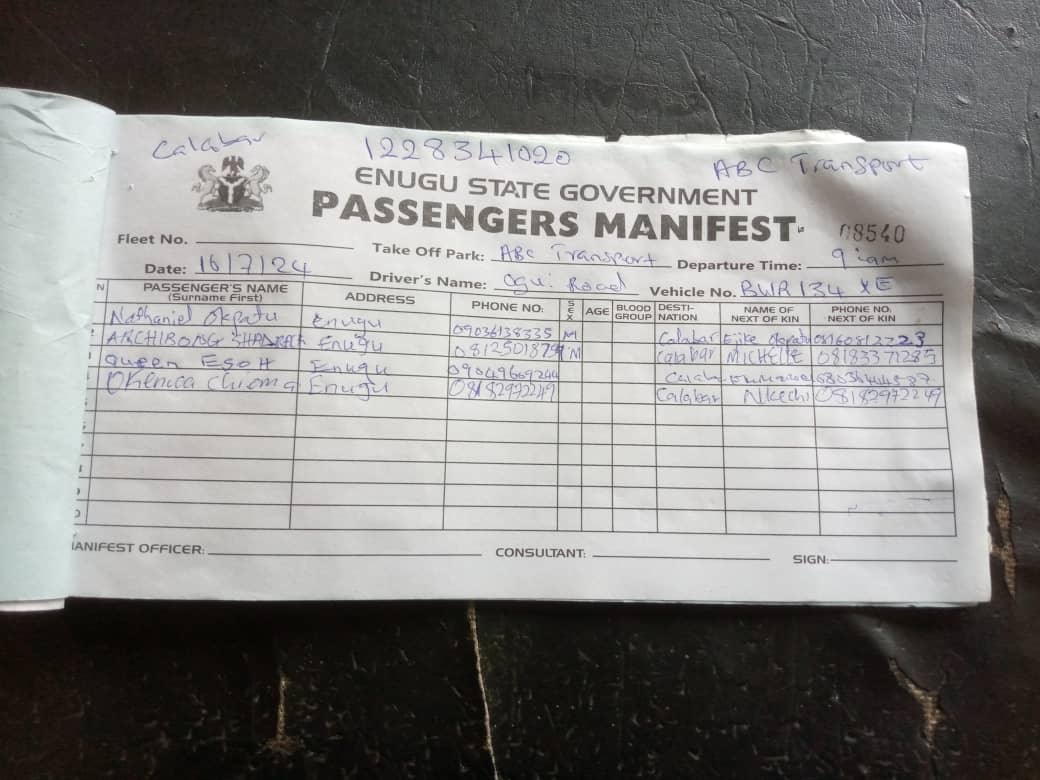 Calabar 1228341020 ABC Transport
ENUGU STATE GOVERNMENT
PASSENGERS MANIFEST 08540
Fleet No. Take Off Park: ABC Transport Departure Time: 9:
Date: 16/7/24 Driver's Name: Ogui Road Vehicle No. BWR 134 XE
N PASSENGER'S NAME (Surname First) ADDRESS PHONE NO: SEX AGE BLOOD GROUP DESTI-NATION NAME OF NEXT OF KIN PHONE NO: NEXT OF KIN
Nathaniel Enugu 09036138335 M Calabar Ejike
ARCHIBONG Enugu M Calabar MICHELLE 08183371285
Queen ESOH Enugu 09049669244
Chioma Enugu 08182972249 Calabar Nkechi 08182972249
MANIFEST OFFICER: CONSULTANT: SIGN: